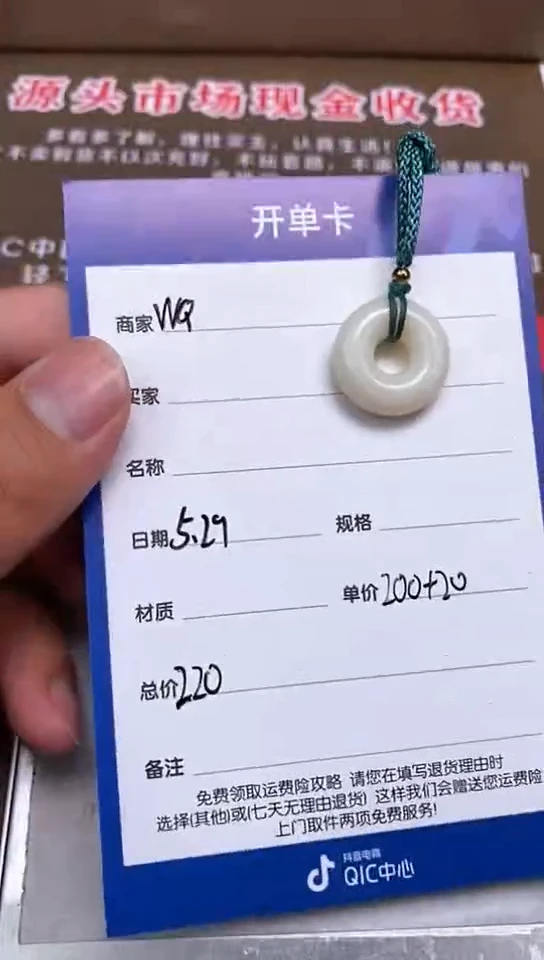 源头市场现金收货
开单卡
商家 WQ
买家
名称
日期 5.29
规格
材质
单价 200+20
总价 220
备注
免费领取运费险攻略 请您在填写退货理由时
选择(其他)或(七天无理由退货) 这样我们会赠送您运费险
上门取件两项免费服务!
抖音电商
QIC中心